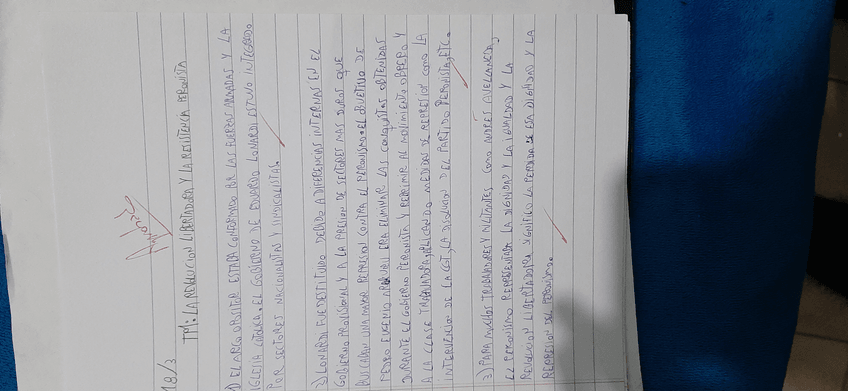 18/3
TP1: LA REVOLUCION LIBERTADORA Y LA RESISTENCIA PERONISTA
1) EL ARCO OPOSITOR ESTABA CONFORMADO POR LAS FUERZAS ARMADAS Y LA
IGLESIA CATOLICA. EL GOBIERNO DE EDUARDO LONARDI ESTUVO INTEGRADO
POR SECTORES NACIONALISTAS Y SINDICALISTAS.
2) LONARDI FUE DESTITUIDO DEBIDO A DIFERENCIAS INTERNAS EN EL
GOBIERNO PROVISIONAL Y A LA PRESION DE SECTORES MAS DUROS QUE
BUSCABAN UNA MAYOR REPRESION CONTRA EL PERONISMO. EL OBJETIVO DE
PEDRO EUGENIO ARAMBURU ERA ELIMINAR LAS CONQUISTAS OBTENIDAS
DURANTE EL GOBIERNO PERONISTA Y REPRIMIR AL MOVIMIENTO OBRERO Y
A LA CLASE TRABAJADORA, APLICANDO MEDIDAS DE REPRESION COMO LA
INTERVENCION DE LA CGT, LA DISOLUCION DEL PARTIDO PERONISTA, ETC.
3) PARA MUCHOS TRABAJADORES Y MILITANTES COMO ANDRES AVELLANEDA,
EL PERONISMO REPRESENTABA LA DIGNIDAD Y LA IGUALDAD Y LA
REVOLUCION LIBERTADORA SIGNIFICO LA PERDIDA DE ESA DIGNIDAD Y LA
REPRESION DEL PERONISMO.